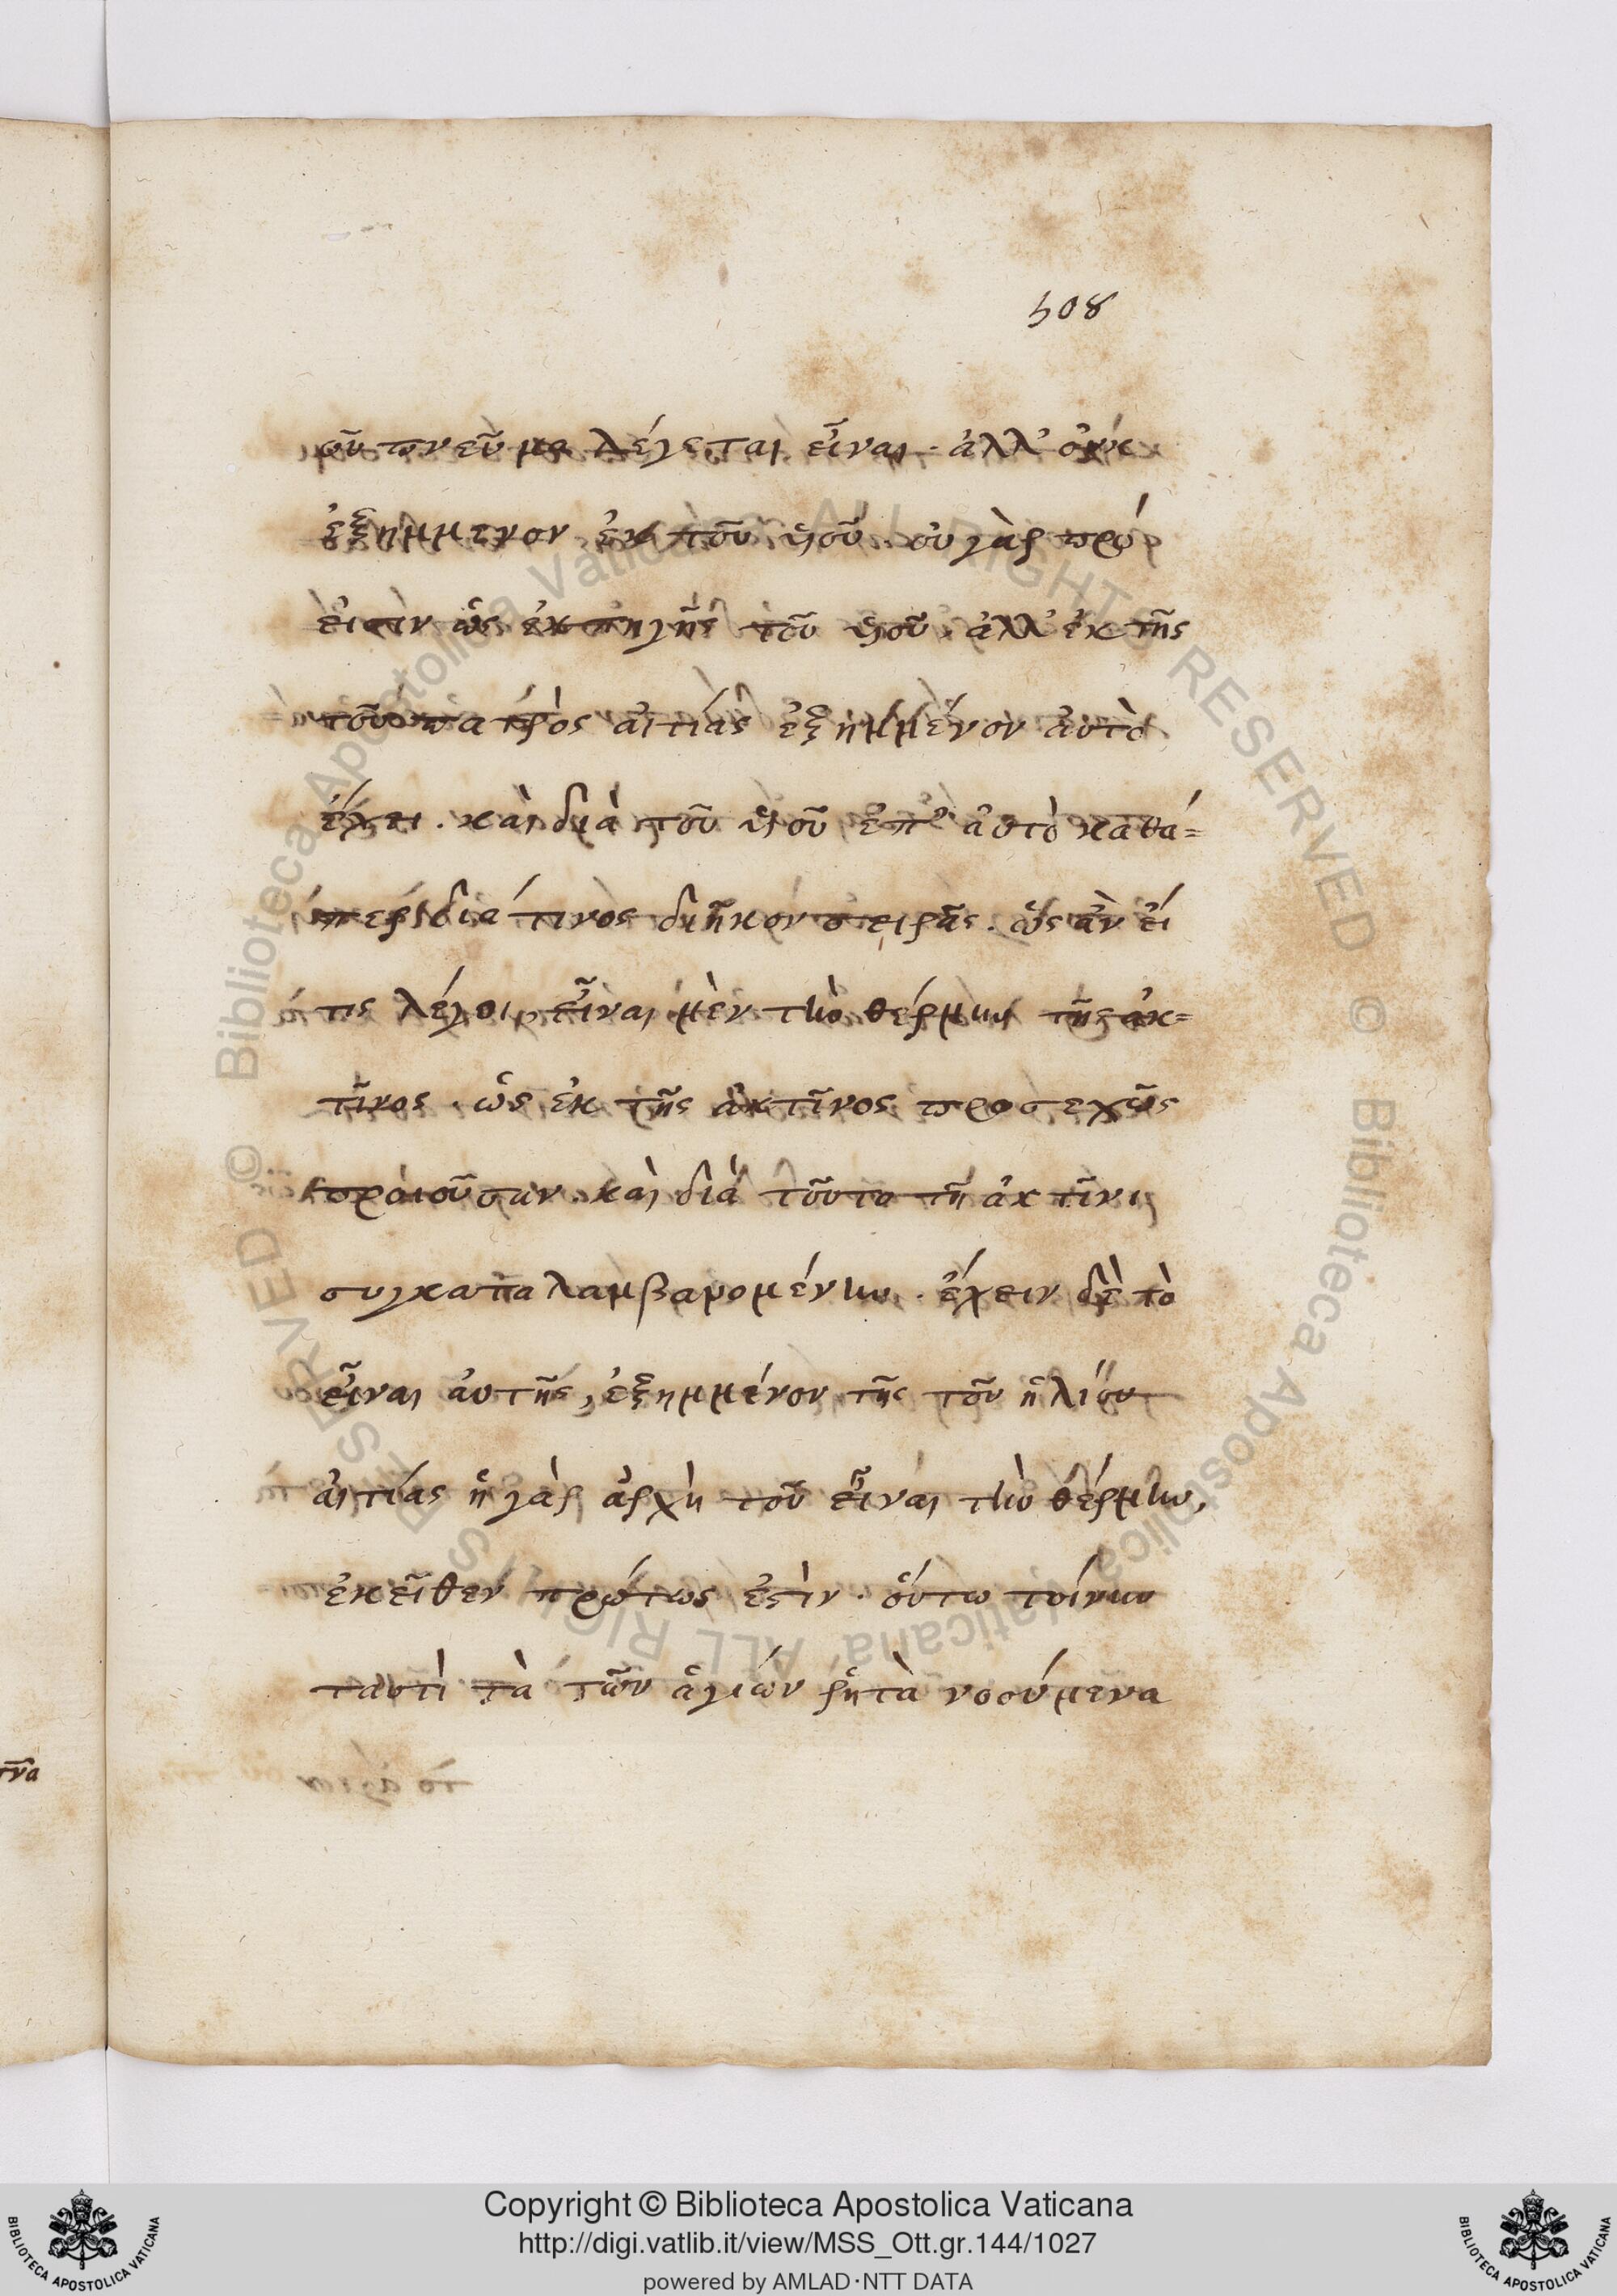 508
οῦ πνεῦμα λέγεται εἶναι· ἀλλ' οὐκ
ἐξημμενον ἐκ τοῦ ὑιοῦ. οὐ γὰρ πρό
εἰσιν ὡς ἐκ πηγῆς τοῦ ὑιοῦ. ἀλλ' ἐκ τῆς
τοῦ πατρὸς αἰτίας ἐξημμένον ἀυτὸ
ἔχει. καὶ διὰ τοῦ ὑιοῦ ἐπ' ἀυτὸ καθά=
περ διά τινος διῆκον σειρᾶς. ὡς ἀν εἴ
τις λέγοι, εἶναι μὲν τὴν θέρμην τῆς ἀκ=
τῖνος. ὡς ἐκ τῆς ἀκτῖνος προσεχῶς
προϊοῦσαν. καὶ διά τοῦτο τῇ ἀκτῖνι
συγκαταλαμβανομένην. ἔχειν δὲ τὸ
εἶναι ἀυτῆς, ἐξημμένον τῆς τοῦ ἡλίου
ἀιτίας ἡ γὰρ ἀρχὴ τοῦ εἶναι τὴν θέρμην,
ἐκεῖθεν πρώτως ἐστὶν. ὅυτω τοίνυν
ταυτὶ τὰ τῶν ἁγίων ῥητὰ νοούμενα
Copyright © Biblioteca Apostolica Vaticana
http://digi.vatlib.it/view/MSS_Ott.gr.144/1027
powered by AMLAD·NTT DATA